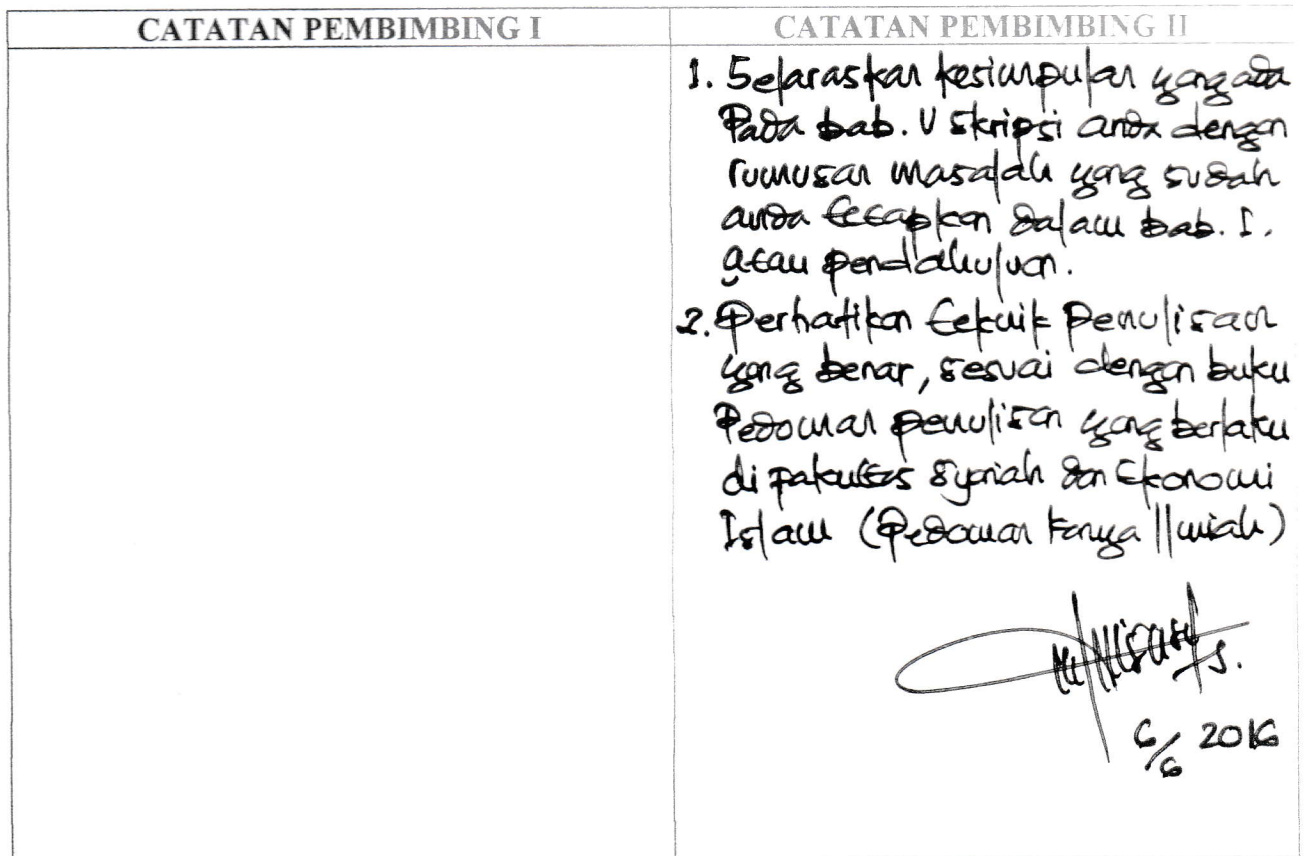 CATATAN PEMBIMBING I
CATATAN PEMBIMBING II
1. Selaraskan kesimpulan yang ada
Pada bab. V skripsi anda dengan
rumusan masalah yang sudah
anda tetapkan dalam bab. I.
atau pendahuluan.
2. Perhatikan teknik Penulisan
yang benar, sesuai dengan buku
Pedoman penulisan yang berlaku
di pakultas Syariah dan Ekonomi
Islam (Pedoman Karya Ilmiah)
6/6 2016